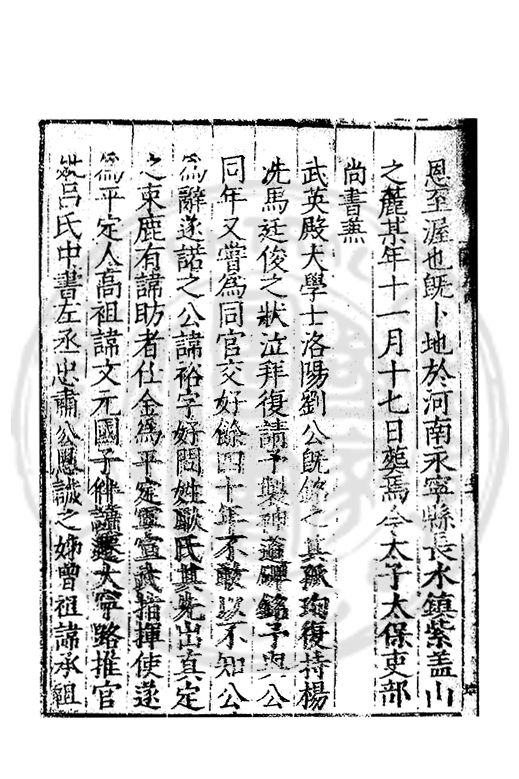 恩至渥也既卜地於河南永寧縣長水鎮紫盖山
之麓某年十一月十七日葬焉今太子太保吏部
尚書兼
武英殿大學士洛陽劉公既銘之其孤珣復持楊
洗馬廷俊之狀泣拜復請予製神道碑銘予與公
同年又嘗為同官交好餘四十年不敢以不知公
為辭遂諾之公諱裕字好問姓耿氏其先出真定
之束鹿有諱昉者仕金為平定宣武指揮使遂
為平定人高祖諱文元國子伴讀大寧路推官
呂氏中書左丞忠肅公思誠之姊曾祖諱承祖